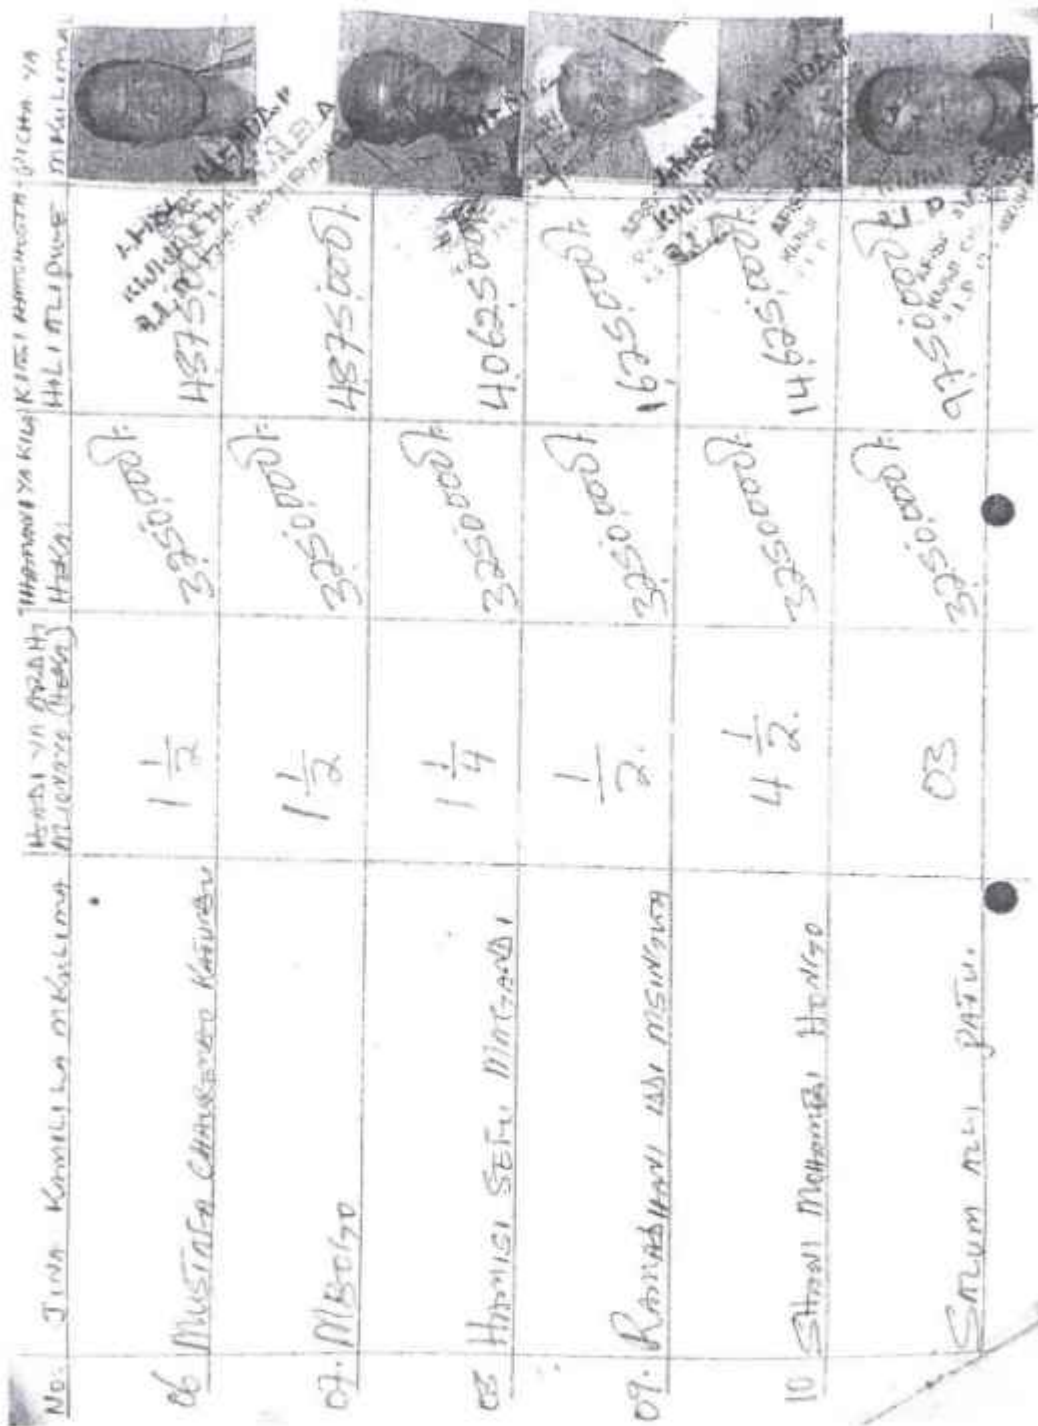 No. JINA KAMILI LA MKULIMA IDADI YA ARDHI THAMANI YA KILA KIASI ANACHOTA- PICHA YA
(HEKA) HEKA. HILI ALIPWE MKULIMA
06 MUSTAFA CHAUREMBO 1 1/2 3,250,000/= 4,875,000/=
07. MBOGO 1 1/2 3,250,000/= 4,875,000/=
08 HAMISI SEIF MAGANDI 1 1/4 3,250,000/= 4,062,500/=
09. RAMADHANI IDDI MSINGWA 1/2. 3,250,000/= 1,625,000/=
10 SHANI MOHAMEDI HONGO 4 1/2. 3,250,000/= 14,625,000/=
SALUM ALLI PATU. 03 3,250,000/= 9,750,000/=